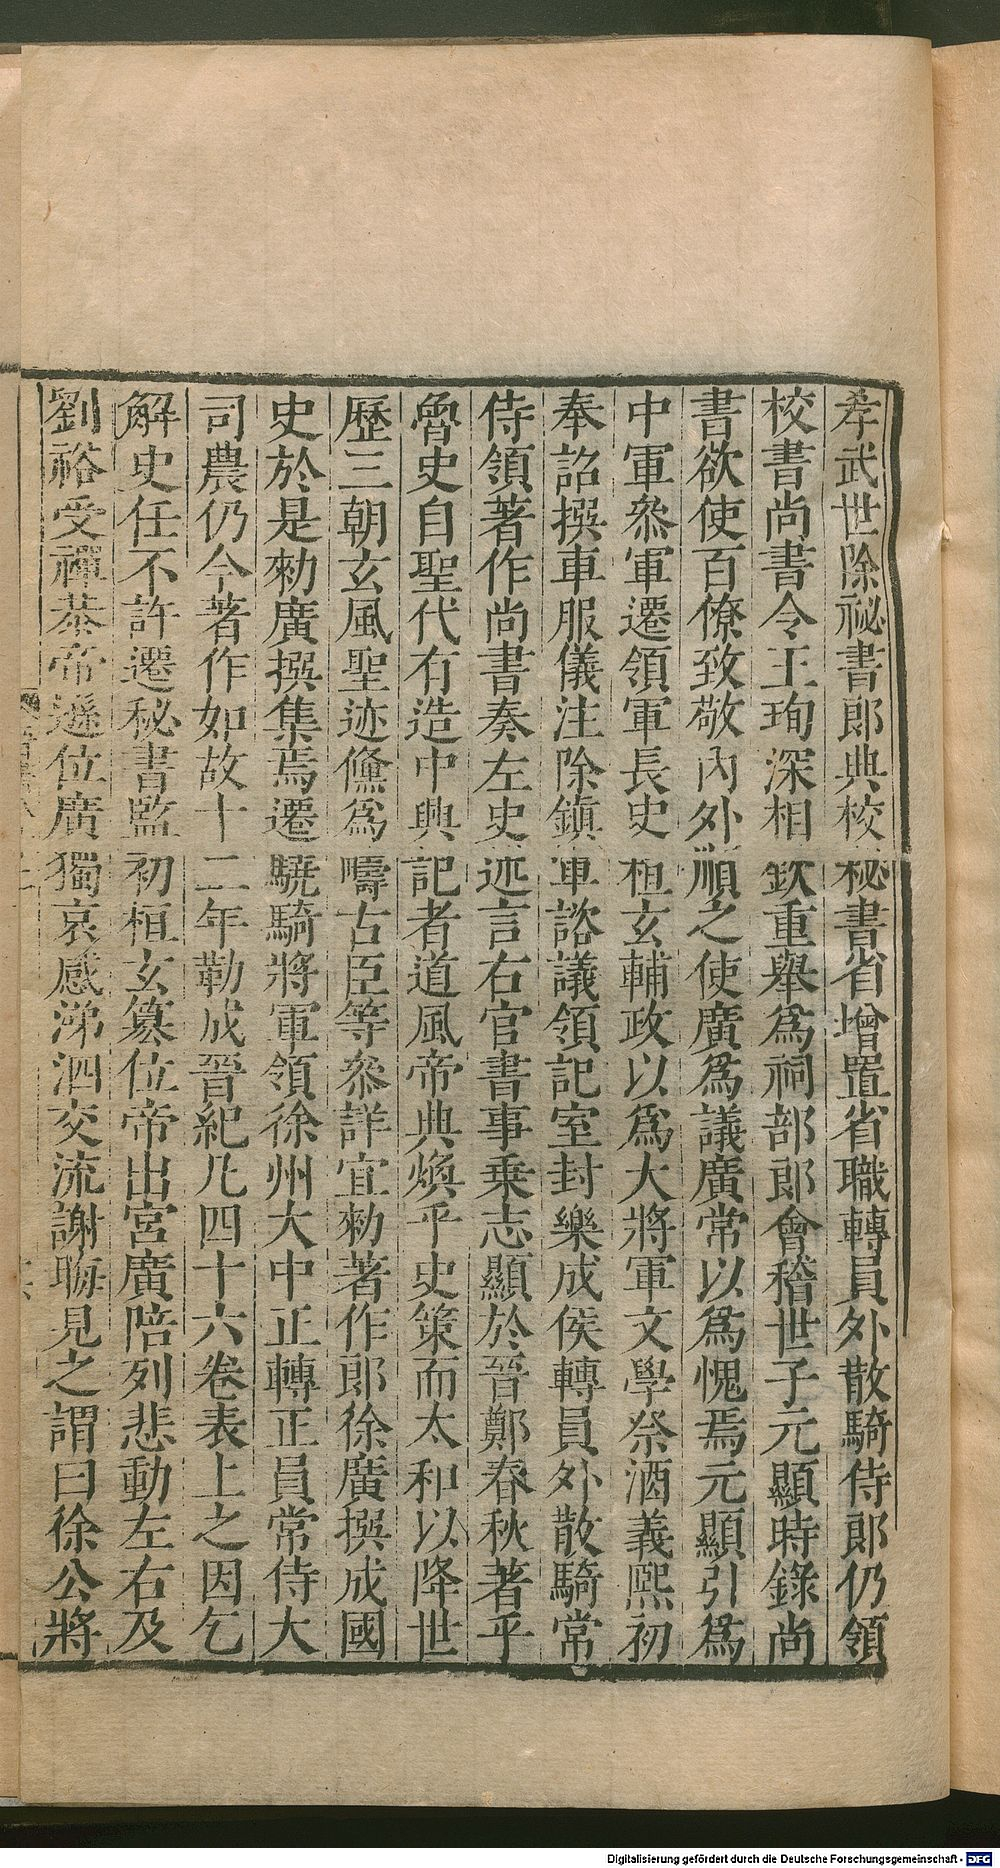 孝武世除祕書郎典校秘書省增置省職轉員外散騎侍郎仍領
校書尚書令王珣深相欽重舉爲祠部郎會稽世子元顯時錄尚
書欲使百僚致敬內外順之使廣爲議廣常以爲愧焉元顯引爲
中軍叅軍遷領軍長史桓玄輔政以爲大將軍文學祭酒義熙初
奉詔撰車服儀注除鎭軍諮議領記室封樂成侯轉員外散騎常
侍領著作尚書奏左史述言右官書事乗志顯於晉鄭春秋著乎
魯史自聖代有造中興記者道風帝典煥乎史策而太和以降世
歷三朝玄風聖迹儵爲疇古臣等叅詳宜勑著作郎徐廣撰成國
史於是勑廣撰集焉遷驍騎將軍領徐州大中正轉正員常侍大
司農仍令著作如故十二年勒成晉紀凡四十六卷表上之因乞
解史任不許遷秘書監初桓玄篡位帝出宮廣陪列悲動左右及
劉裕受禪恭帝遜位廣獨哀感涕泗交流謝晦見之謂曰徐公將
Digitalisierung gefördert durch die Deutsche Forschungsgemeinschaft - DFG